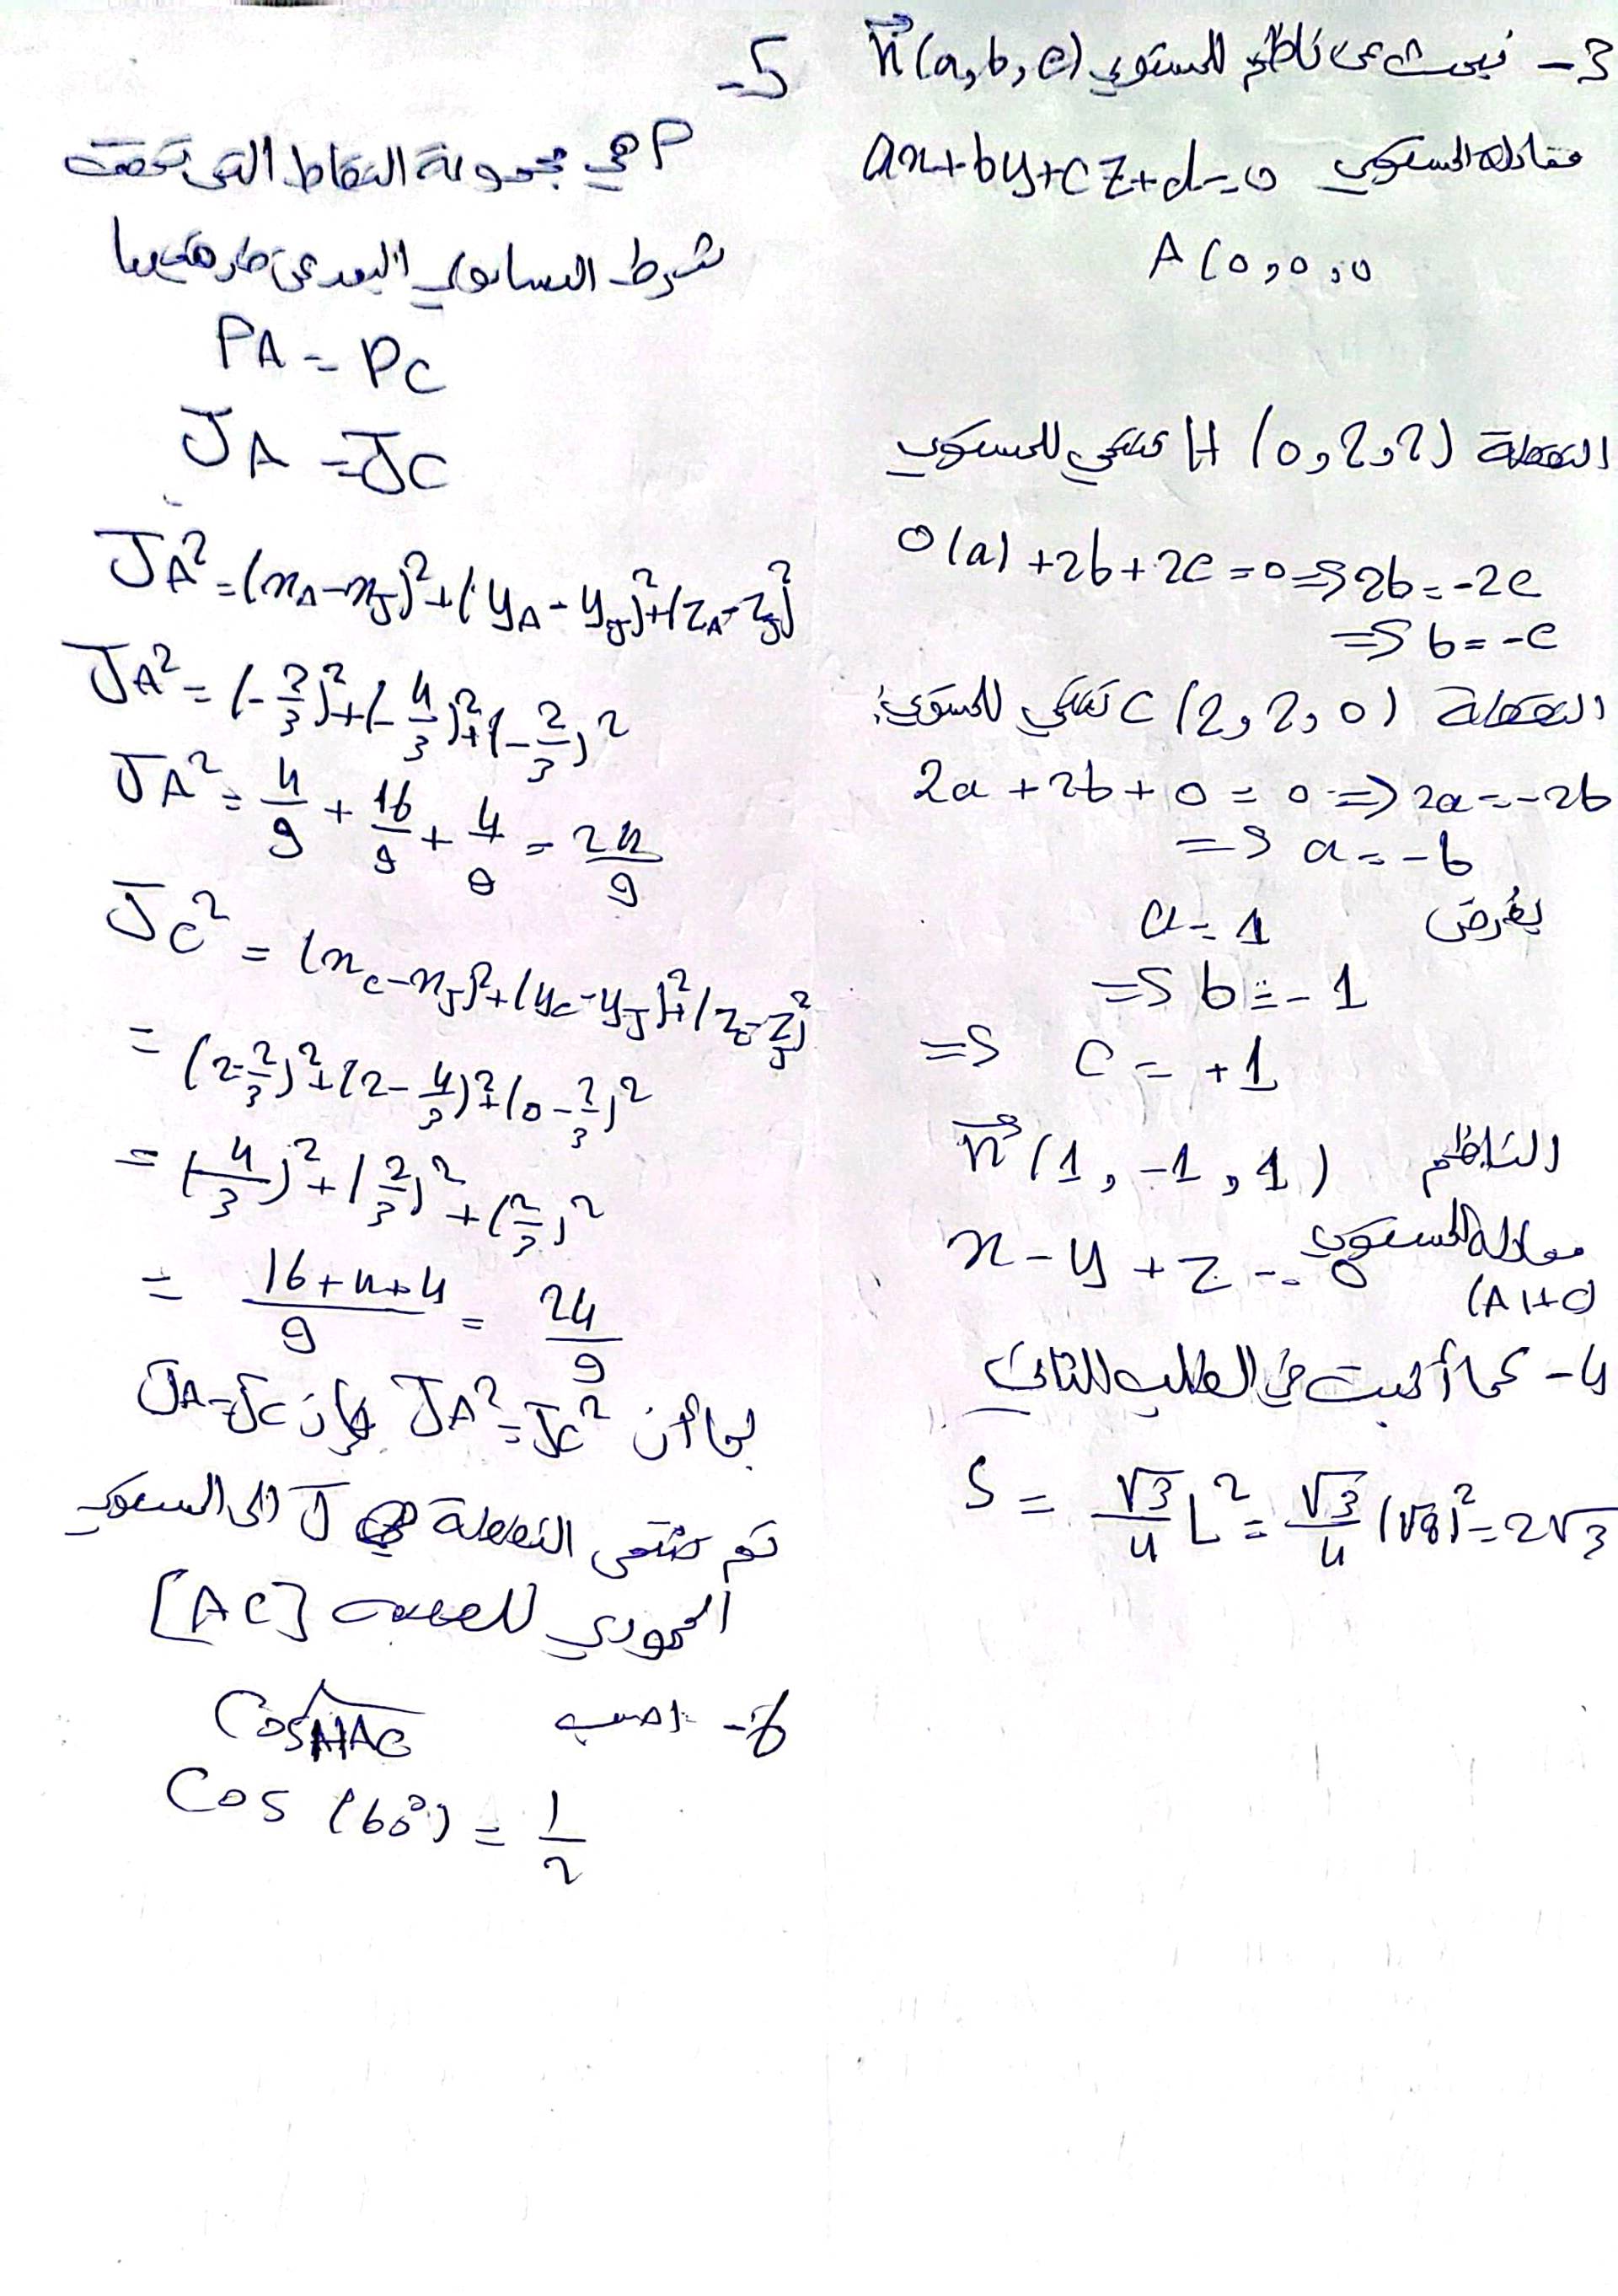 3- نبحث عن ناظم للمستوي n⃗(a,b,c)
معادلة المستوي ax+by+cz+d=0
A(0,0,0
النقطة H(0,2,2) تنتمي للمستوي
0(a)+2b+2c=0⇒2b=-2c
⇒b=-c
النقطة C(2,2,0) تنتمي للمستوي:
2a+2b+0=0⇒2a=-2b
⇒a=-b
بفرض a=1
⇒b=-1
⇒c=+1
الناظم n⃗(1,-1,1)
معادلة المستوي x-y+z=0
(AHC)
4- كما أثبت في الطلب الثاني
S=√3/4 L²=√3/4 (√8)²=2√3
5-
P هي مجموعة النقاط التي تحقق
شرط التساوي البعد عن طرفيها
PA=PC
JA=JC
JA²=(x_A-x_J)²+(y_A-y_J)²+(z_A-z_J)²
JA²=(-2/3)²+(-4/3)²+(-2/3)²
JA²=4/9+16/9+4/9=24/9
JC²=(x_C-x_J)²+(y_C-y_J)²+(z_C-z_J)²
=(2-2/3)²+(2-4/3)²+(0-2/3)²
=(4/3)²+(2/3)²+(2/3)²
=16+4+4/9=24/9
بما أن JA²=JC² فإن JA=JC
النقطة J الى المستوي
المحوري للقطعة [AC]
6- احسب Cos HAC
Cos(60°)=1/2